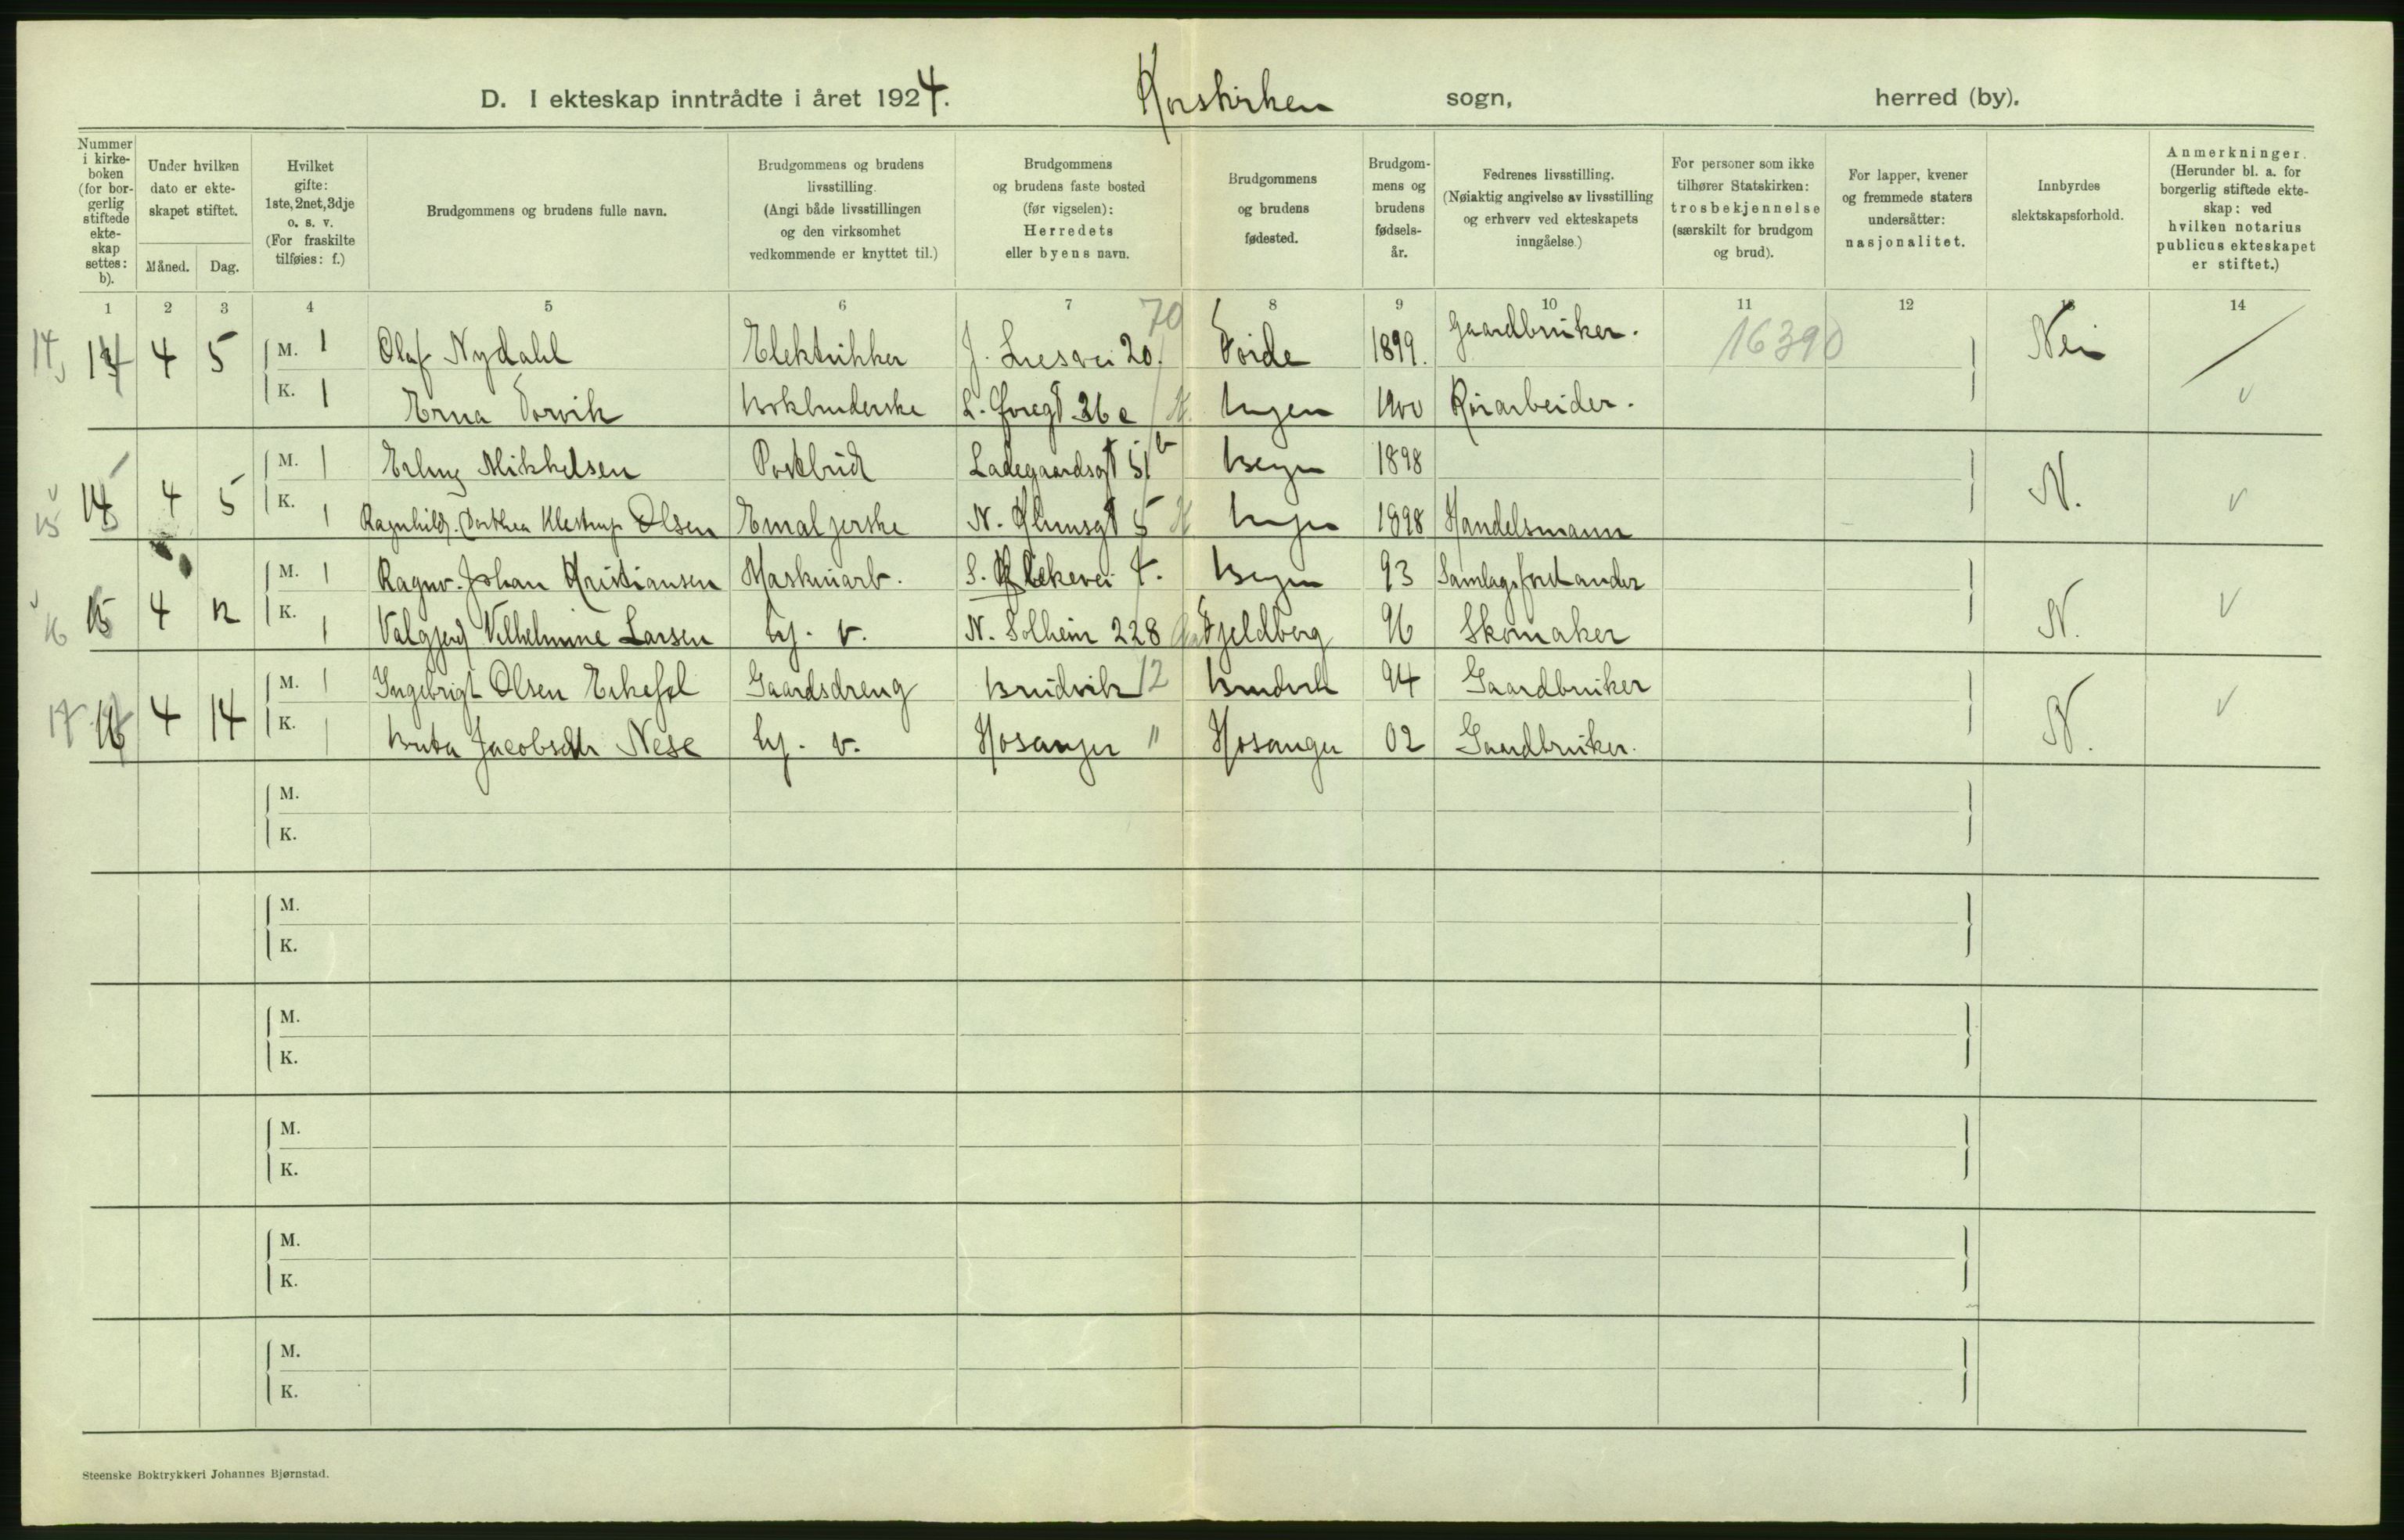 D. I ekteskap inntrådte i året 1924. Korskirken sogn, herred (by).
Nummer i kirkeboken (for borgerlig stiftede ekteskap settes: b).
Under hvilken dato er ekteskapet stiftet.
Måned. Dag.
Hvilket gifte: 1ste, 2net, 3dje o. s. v. (For fraskilte tilføies: f.)
Brudgommens og brudens fulle navn.
Brudgommens og brudens livsstilling. (Angi både livsstillingen og den virksomhet vedkommende er knyttet til.)
Brudgommens og brudens faste bosted (før vigselen): Herredets eller byens navn.
Brudgommens og brudens fødested.
Brudgommens og brudens fødselsår.
Fedrenes livsstilling. (Nøiaktig angivelse av livsstilling og erhverv ved ekteskapets inngåelse.)
For personer som ikke tilhører Statskirken: trosbekjennelse (særskilt for brudgom og brud).
For lapper, kvener og fremmede staters undersåtter: nasjonalitet.
Innbyrdes slektskapsforhold.
Anmerkninger. (Herunder bl. a. for borgerlig stiftede ekteskap: ved hvilken notarius publicus ekteskapet er stiftet.)
1 2 3 4 5 6 7 8 9 10 11 12 13 14
14 4 5 M. 1 Olaf Nydahl Elektrikker 20. 70 1899. Gaardbruker. 16390 Nei
K. 1 Erna Torvik Bokbinderske 36 c Bergen 1900 Rörarbeider.
15 4 5 M. 1 Erling Mikkelsen Postbud Ladegaardsgt 51 b Bergen 1898 N.
K. 1 Ragnhild Dorthea Olsen Emaljerske 5 Bergen 1898 Handelsmann
16 4 12 M. 1 Ragnv. Johan Kristiansen Maskinarb. Bergen 93 N.
K. 1 Vilhelmine Larsen Hj. v. N. Solheim 228 Fjeldberg 96 Skomaker
17 4 14 M. 1 Ingebrigt Olsen Gaardsdreng Bruvik 12 Bruvik 94 Gaardbruker N.
K. 1 Brita Jacobsdtr Nese Hj. v. Hosanger " Hosanger 02 Gaardbruker.
M.
K.
M.
K.
M.
K.
M.
K.
M.
K.
M.
K.
Steenske Boktrykkeri Johannes Bjørnstad.